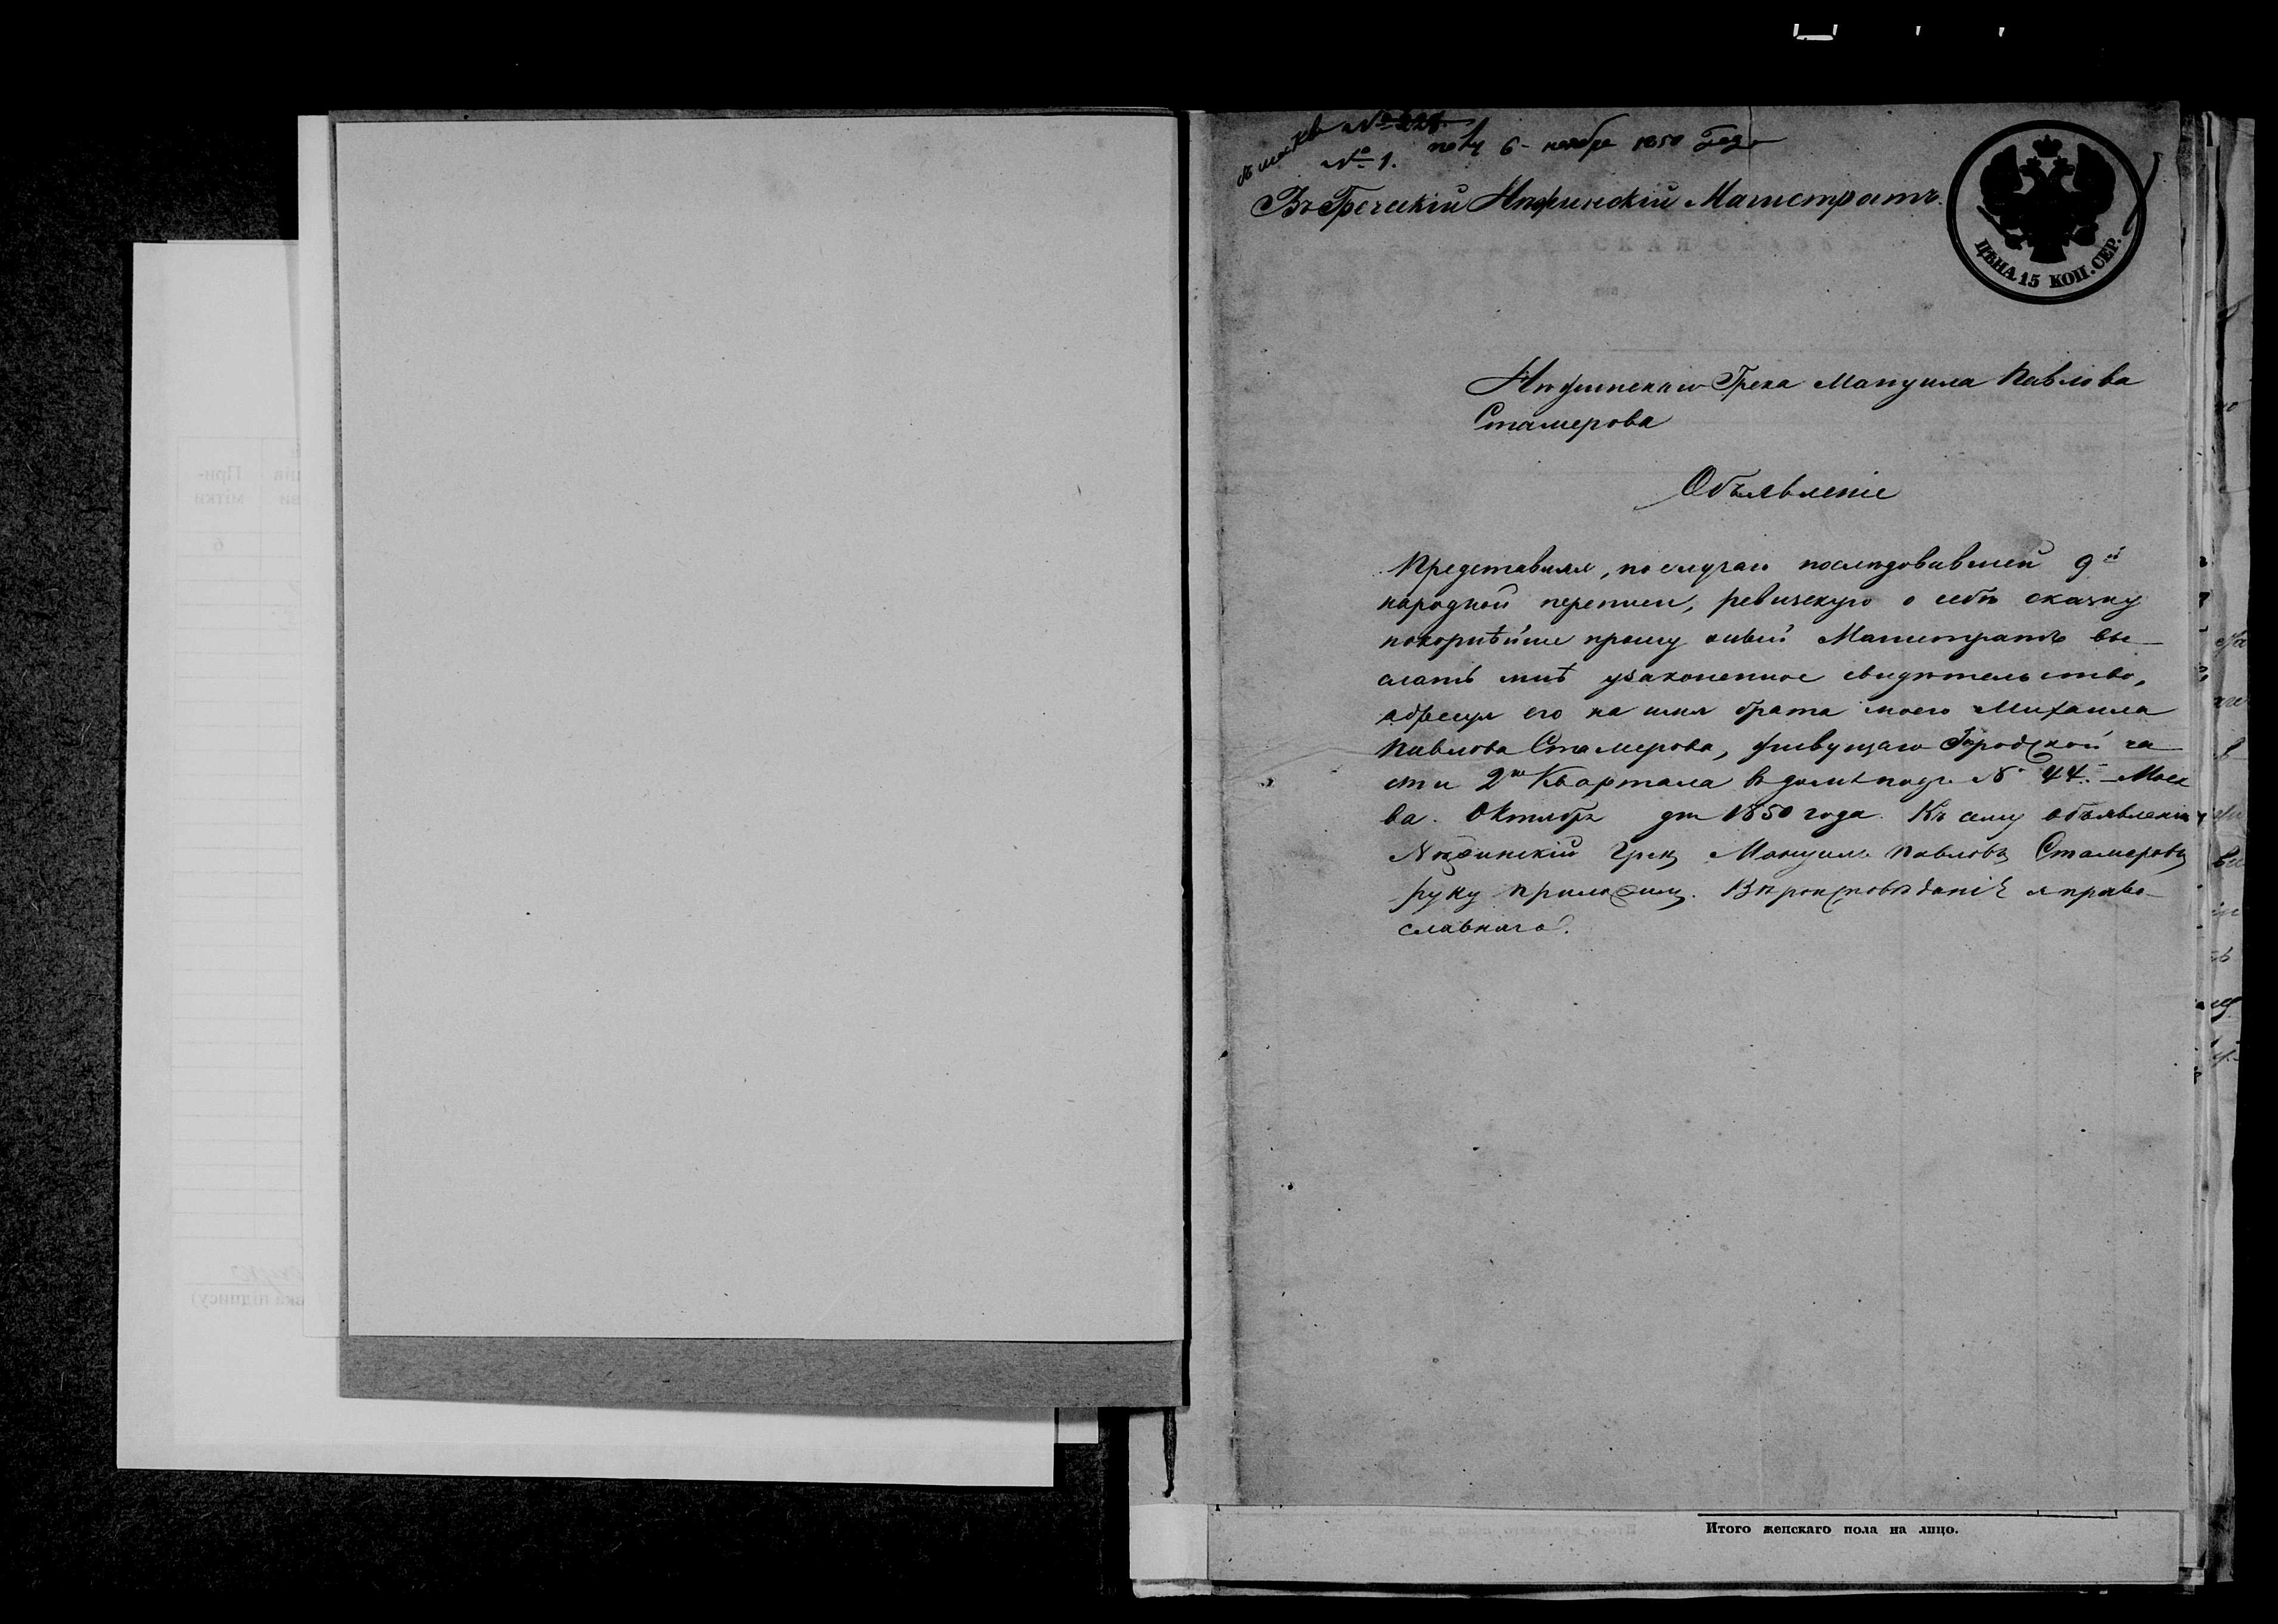 № 1. 6 ноября 1850 года
Въ Греческій Нѣжинскій Магистратъ.
ЦѢНА 15 КОП. СЕР.
Нѣжинскаго Грека Мануила Павлова
Стамерова
Объявленіе
Представляя, по случаю послѣдовавшей 9й
народной переписи, ревизскую о себѣ сказку
покорнѣйше прошу оный Магистратъ вы-
слать мнѣ узаконенное свидѣтельство,
адресуя его на имя брата моего Михаила
Павлова Стамерова, живущаго Городской ча
сти 2го Квартала в домѣ подъ № 44. Моск
ва. Октября дня 1850 года. Къ сему объявленію
Нѣжинскій Грекъ Мануилъ Павловъ Стамеровъ
руку приложилъ. Вѣроисповѣданіе я право-
славнаго.
Итого женскаго пола на лицо.